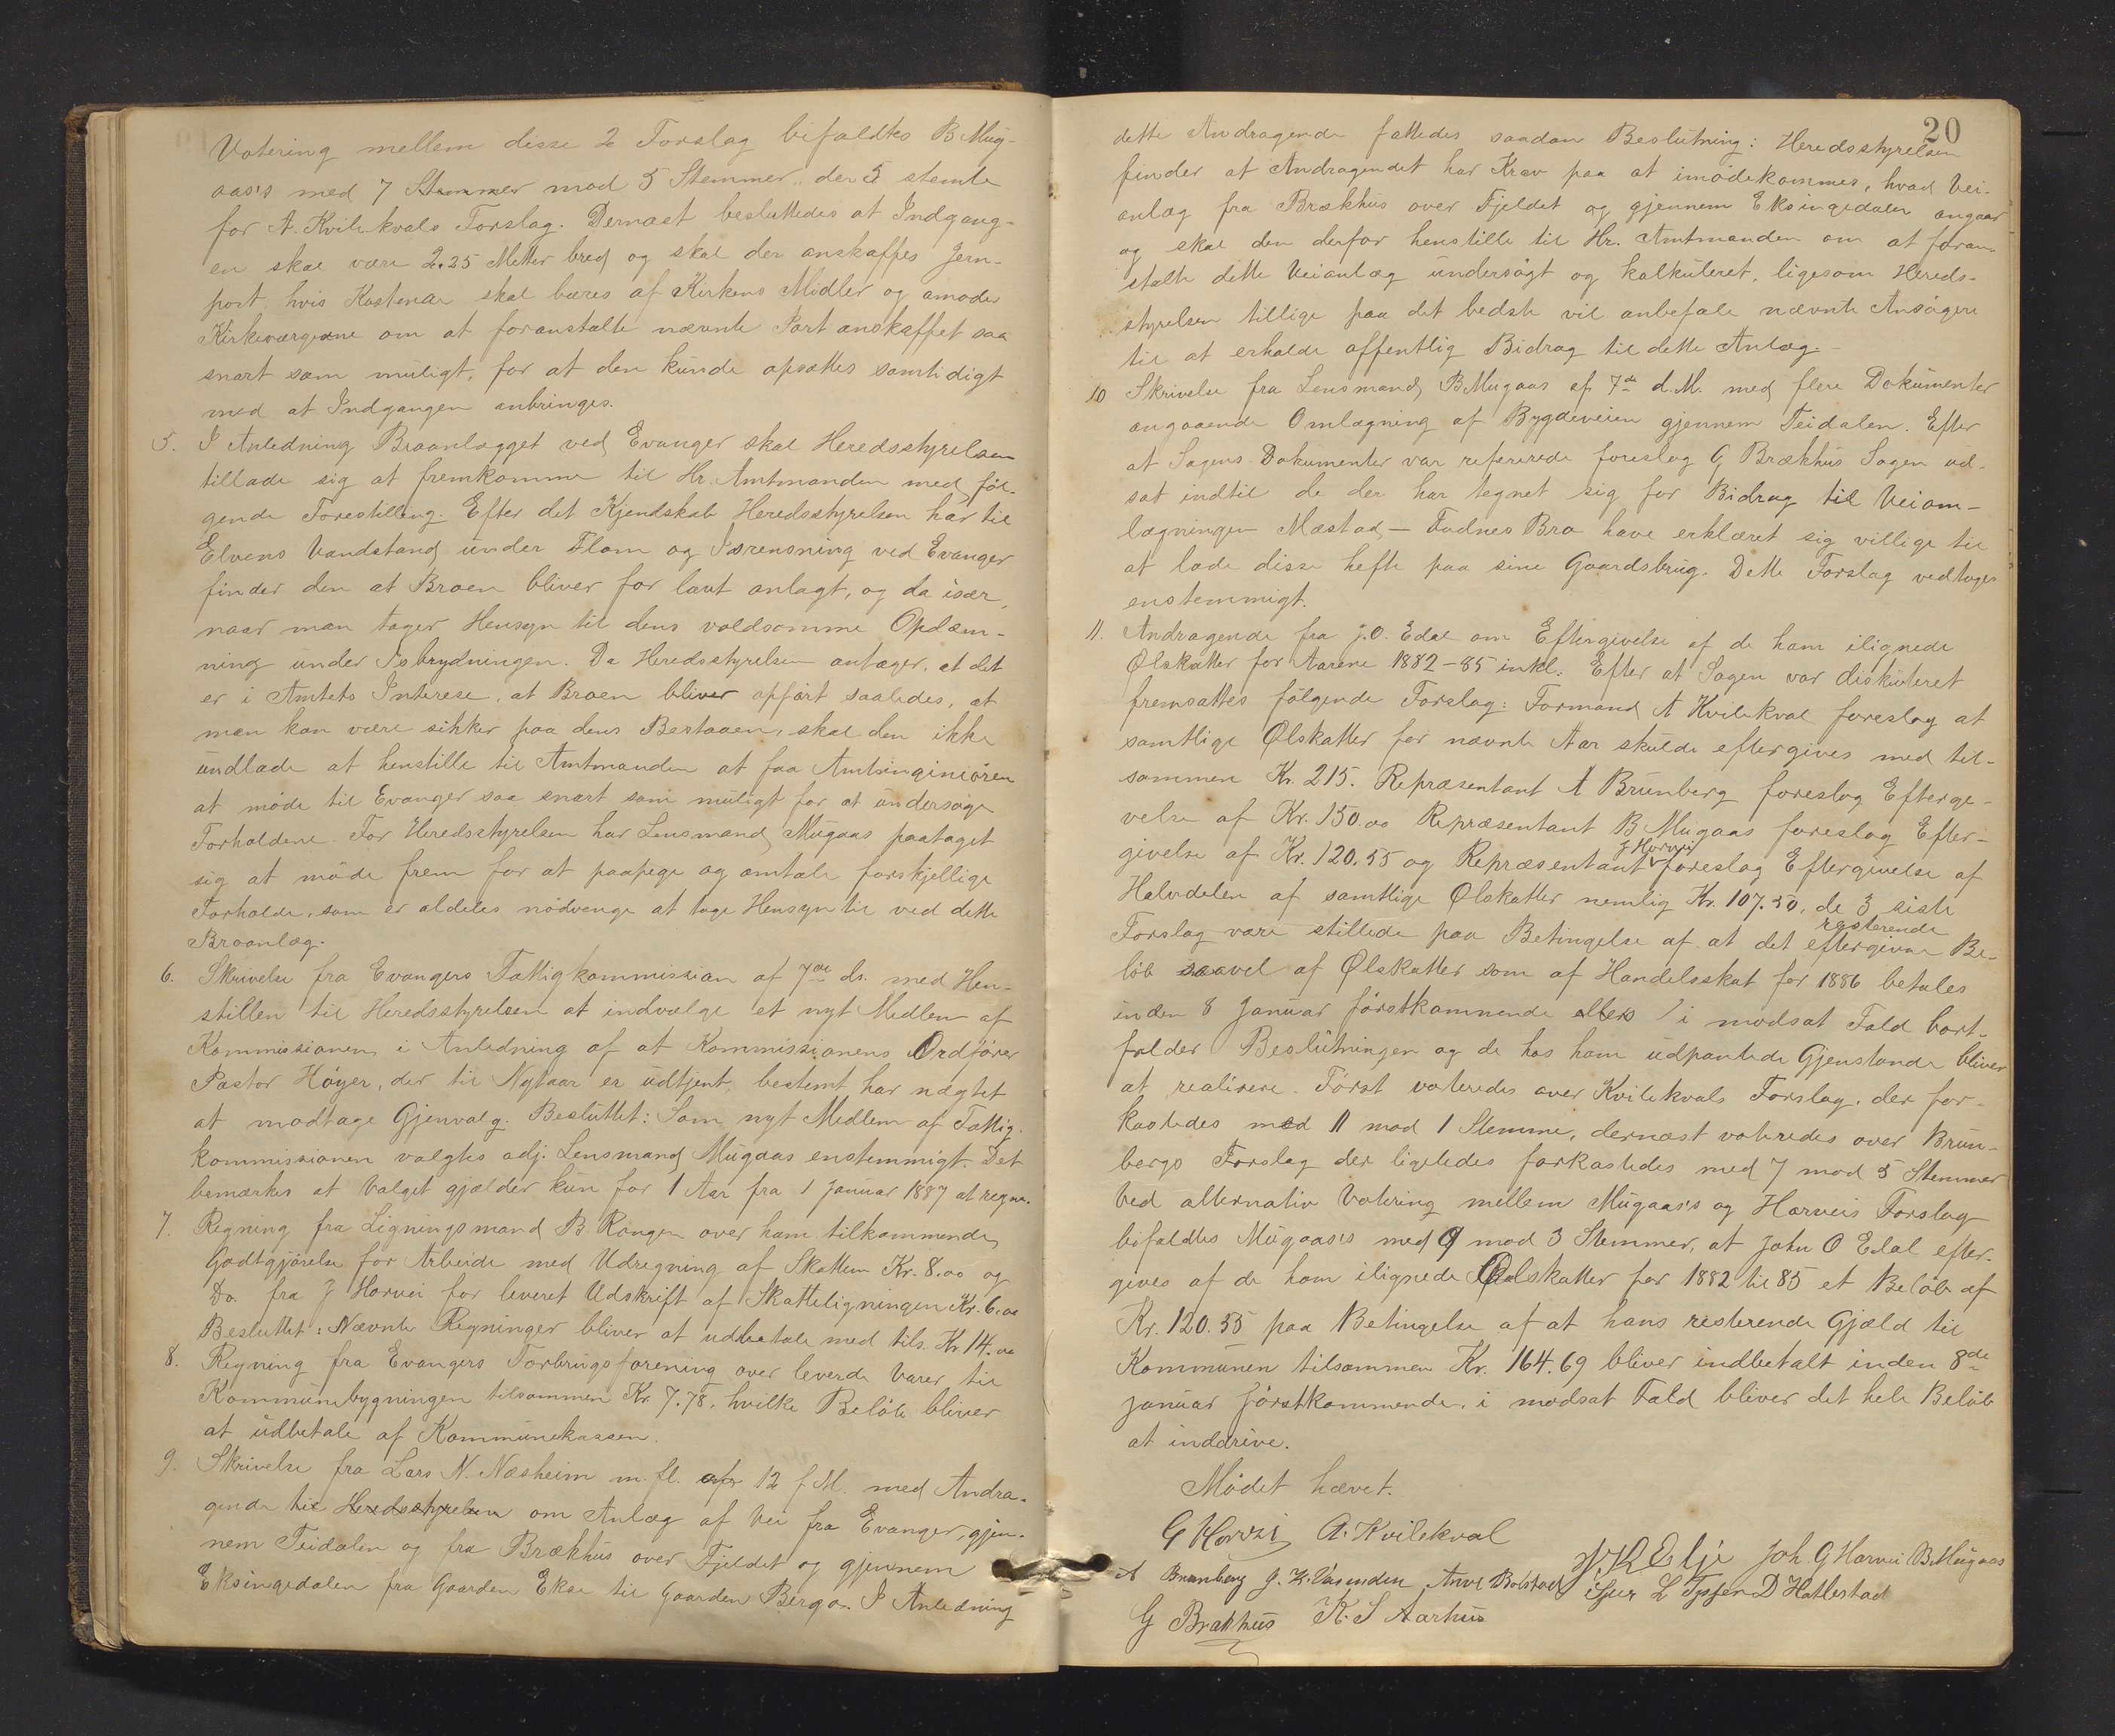 Votering mellem disse 2 Forslag bifaldtes B Mug-
aas's med 7 Stemmer mod 5 Stemmer, der 5 stemte
for A. Kvilekvals Forslag. Dernæst besluttedes at Indgang-
en skal være 2.25 Metter bred og skal der anskaffes Jern-
port, hvis Kostende skal bæres af Kirkens Midler og anmoder
Kirkeværgerne om at foranstalte nævnte Port anskaffet saa
snart som muligt, for at den kunde opsættes samtidigt
med at Indgangen anbringes.
5. I Anledning Broanlægget ved Evanger skal Heredsstyrelsen
tillade sig at fremkomme til Hr. Amtmanden med føl-
gende Forestilling. Efter det Kjendskab Heredsstyrelsen har til
Elvens Vandstand under Flom og Isrensning ved Evanger
finder den at Broen bliver for lavt anlagt, og da især,
naar man tager Hensyn til dens voldsomme Opdæm-
ning under Isbrydningen. Da Heredsstyrelsen antager, at det
er i Amtets Interese, at Broen bliver opført saaledes, at
man kan være sikker paa dens Bestaaen, skal den ikke
undlade at henstille til Amtmanden at faa Amtsinginiøren
at møde til Evanger saa snart som muligt for at undersøge
Forholdene. For Heredsstyrelsen har Lensmand Mugaas paataget
sig at møde frem for at paapege og omtale forskjellige
Forholde, som er aldeles nødvenge at tage Hensyn til ved dette
Broanlæg.
6. Skrivelse fra Evangers Fattigkommission af 7de ds. med Hen-
stillen til Heredsstyrelsen at indvælge et nyt Medlem af
Kommissionen i Anledning af at Kommissionens Ordfører
Pastor Høyer, der til Nytaar er udtjent, bestemt har nægtet
at modtage Gjenvalg. Besluttet: Som nyt Medlem af Fattig-
kommissionen valgtes adj. Lensmand Mugaas enstemmigt. Det
bemærkes at Valget gjælder kun for 1 Aar fra 1 Januar 1887 at regne.
7. Regning fra Ligningsmand B. Rongen over ham tilkommende
Godtgjørelse for Arbeide med Udregning af Skatten Kr. 8.00 og
Do. fra J Horvei for leveret Udskrift af Skatteligningen Kr. 6.00
Besluttet: Nævnte Regninger bliver at udbetale med tils. Kr. 14.00
8. Regning fra Evangers Forbrugsforening over leverde Varer til
Kommunebygningen tilsammen Kr. 7.78, hvilke Beløb bliver
at udbetale af Kommunekassen.
9. Skrivelse fra Lars N. Næsheim m. fl. af 12 f M. med Andra-
gende til Heredsstyrelsen om Anlæg af Vei fra Evanger, gjen-
nem Teidalen og fra Brækhus over Fjeldet og gjennem
Eksingedalen fra Gaarden Ekse til Gaarden Bergo. I Anledning
20
dette Andragende fattedes saadan Beslutning: Heredsstyrelsen
finder at Andragendet har Krav paa at imødekommes, hvad Vei-
anlæg fra Brækhus over Fjeldet og gjennem Eksingedalen angaar
og skal den derfor henstille til Hr. Amtmanden om at foran-
stalte dette Veianlæg undersøgt og kalkuleret, ligesom Hereds-
styrelsen tillige paa det bedste vil anbefale nævnte Ansøgere
til at erholde offentlig Bidrag til dette Anlæg.
10 Skrivelse fra Lensmand B. Mugaas af 7de d.M. med flere Dokumenter
angaaende Omlægning af Bygdeveien gjennem Teidalen. Efter
at Sagens Dokumenter var refererede foreslog G Brækhus Sagen ud-
sat indtil de der har tegnet sig for Bidrag til Veiom-
lægningen Mæstad – Fadnes Bro have erklæret sig villige til
at lade disse hefte paa sine Gaardsbrug. Dette Forslag vedtoges
enstemmigt.
11. Andragende fra J.O. Edal om Eftergivelse af de ham ilignede
Ølskatter for Aarene 1882-85 inkl. Efter at Sagen var diskuteret
fremsattes følgende Forslag: Formand A Kvilekval foreslog at
samtlige Ølskatter for nævnte Aar skulde eftergives med til-
sammen Kr. 215. Repræsentant A Brunberg foreslog Efterge-
velse af Kr. 150.00 Repræsentant B Mugaas foreslog Efter-
givelse af Kr. 120.55 og Repræsentant J Horvei foreslog Eftergivelse af
Halvdelen af samtlige Ølskatter nemlig Kr. 107.50, de 3 siste
Forslag vare stillede paa Betingelse af at det resterende eftergivne Be-
løb saavel af Ølskatter som af Handelsskat for 1886 betales
inden 8 Januar førstkomnende ellers / i modsat Fald bort-
falder Beslutningen og de hos ham udpantede Gjenstande bliver
at realisere. Først voteredes over Kvilekvals Forslag, der for-
kastedes med 11 mod 1 Stemme, dernæst voteredes over Brun-
bergs Forslag der ligeledes forkastedes med 7 mod 5 Stemmer
Ved alternativ Votering mellem Mugaas's og Horveis Forslag
bifaldtes Mugaas's med 9 mod 3 Stemmer, at John O Edal efter-
gives af de ham ilignede Ølskatter for 1882 til 85 et Beløb af
Kr. 120.55 paa Betingelse af at hans resterende Gjæld til
Kommunen tilsammen Kr. 164.69 bliver indbetalt inden 8de
Januar førstkommende, i modsat Fald bliver det hele Beløb
at inddrive.
Mødet hævet.
G Horvei A. Kvilekval
A Brunberg Arne Bolstad Joh. G Horvei B. Mugaas
G Brækhus K. S Aarhus D Hatlestad